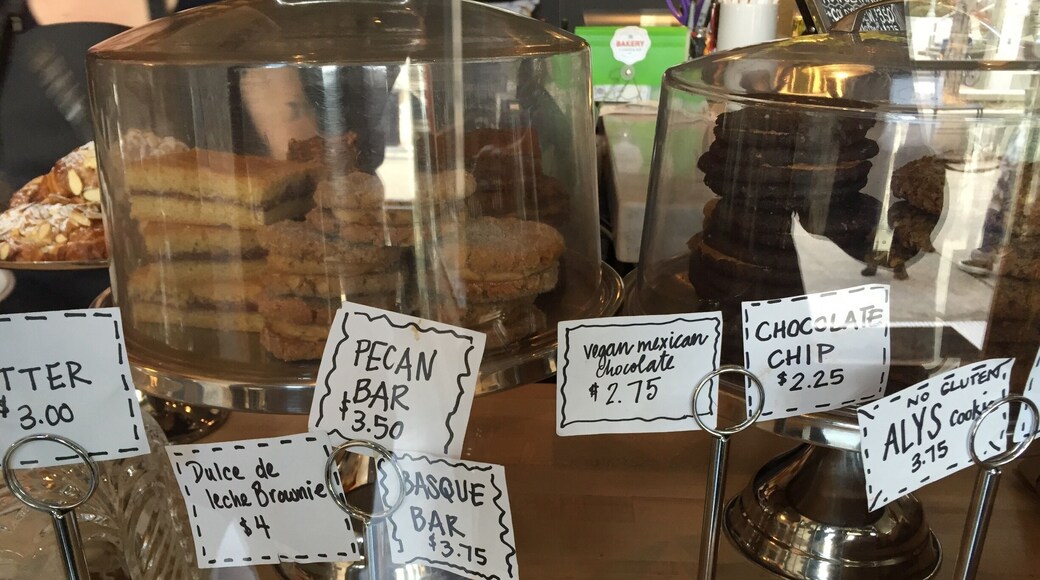 BAKERY
TTER
$3.00
PECAN
BAR
$3.50
Dulce de
leche Brownie
$4
BASQUE
BAR
$3.75
vegan mexican
chocolate
$2.75
CHOCOLATE
CHIP
$2.25
NO GLUTEN
ALYS Cookie
3.75